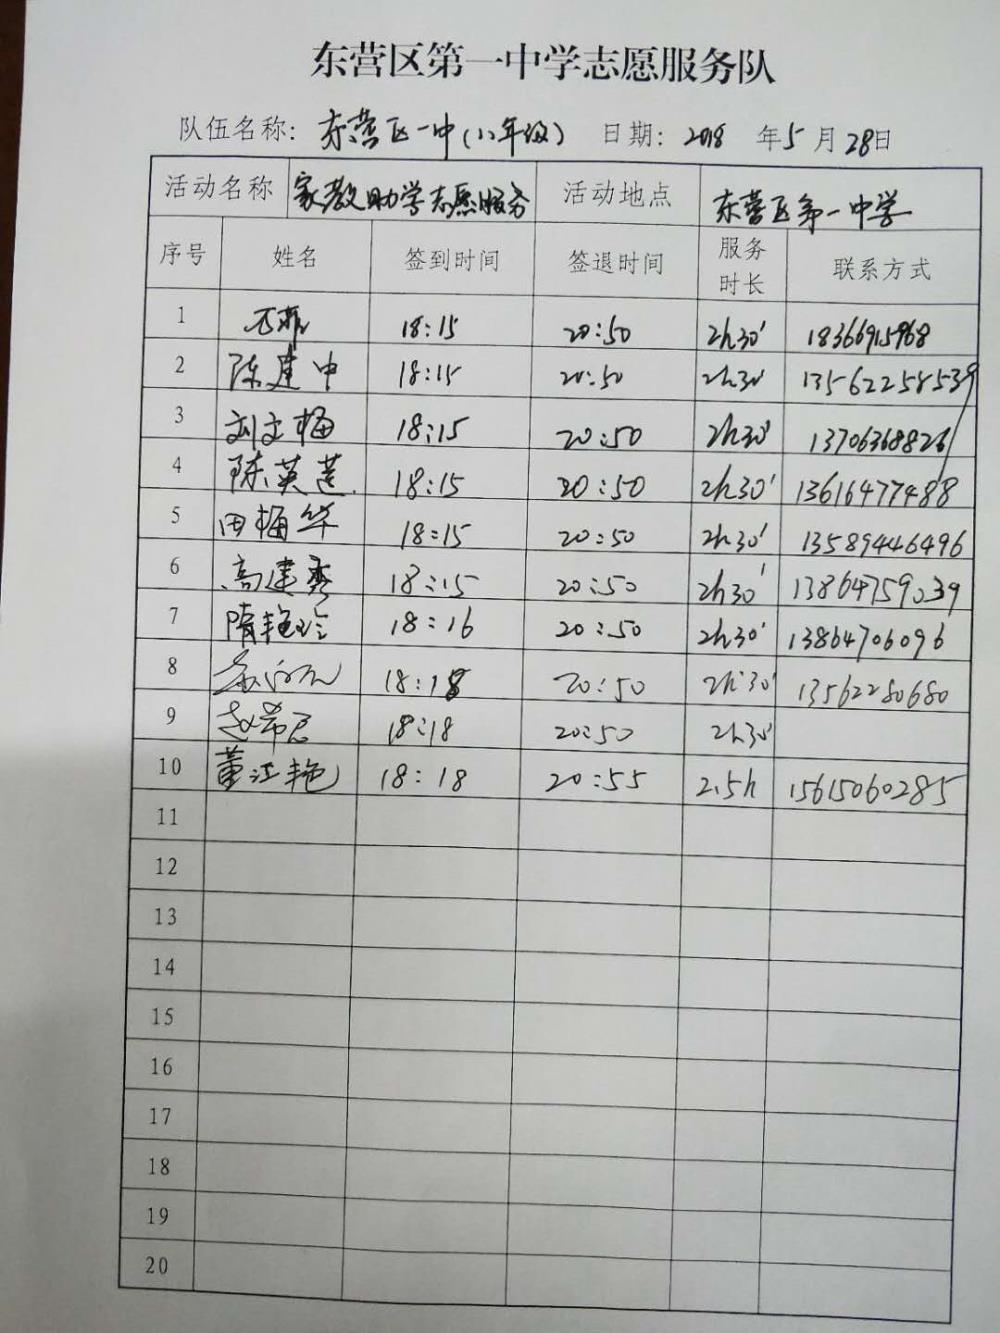 东营区第一中学志愿服务队
队伍名称: 东营区一中(八年级) 日期: 2018 年5月28日
活动名称 家教助学志愿服务 活动地点 东营区第一中学
序号 姓名 签到时间 签退时间 服务时长 联系方式
1 18:15 20:50 2h30' 18366915968
2 陈建中 18:15 20:50 2h30' 13562258539
3 刘文梅 18:15 20:50 2h30' 13706368826
4 陈英莲 18:15 20:50 2h30' 13616477488
5 田梅华 18:15 20:50 2h30' 13589446496
6 高建秀 18:15 20:50 2h30' 13864759039
7 隋艳玲 18:16 20:50 2h30' 13864706096
8 18:18 20:50 2h30' 13562280680
9 赵希君 18:18 20:50 2h30'
10 董江艳 18:18 20:55 2.5h 15615060285
11
12
13
14
15
16
17
18
19
20